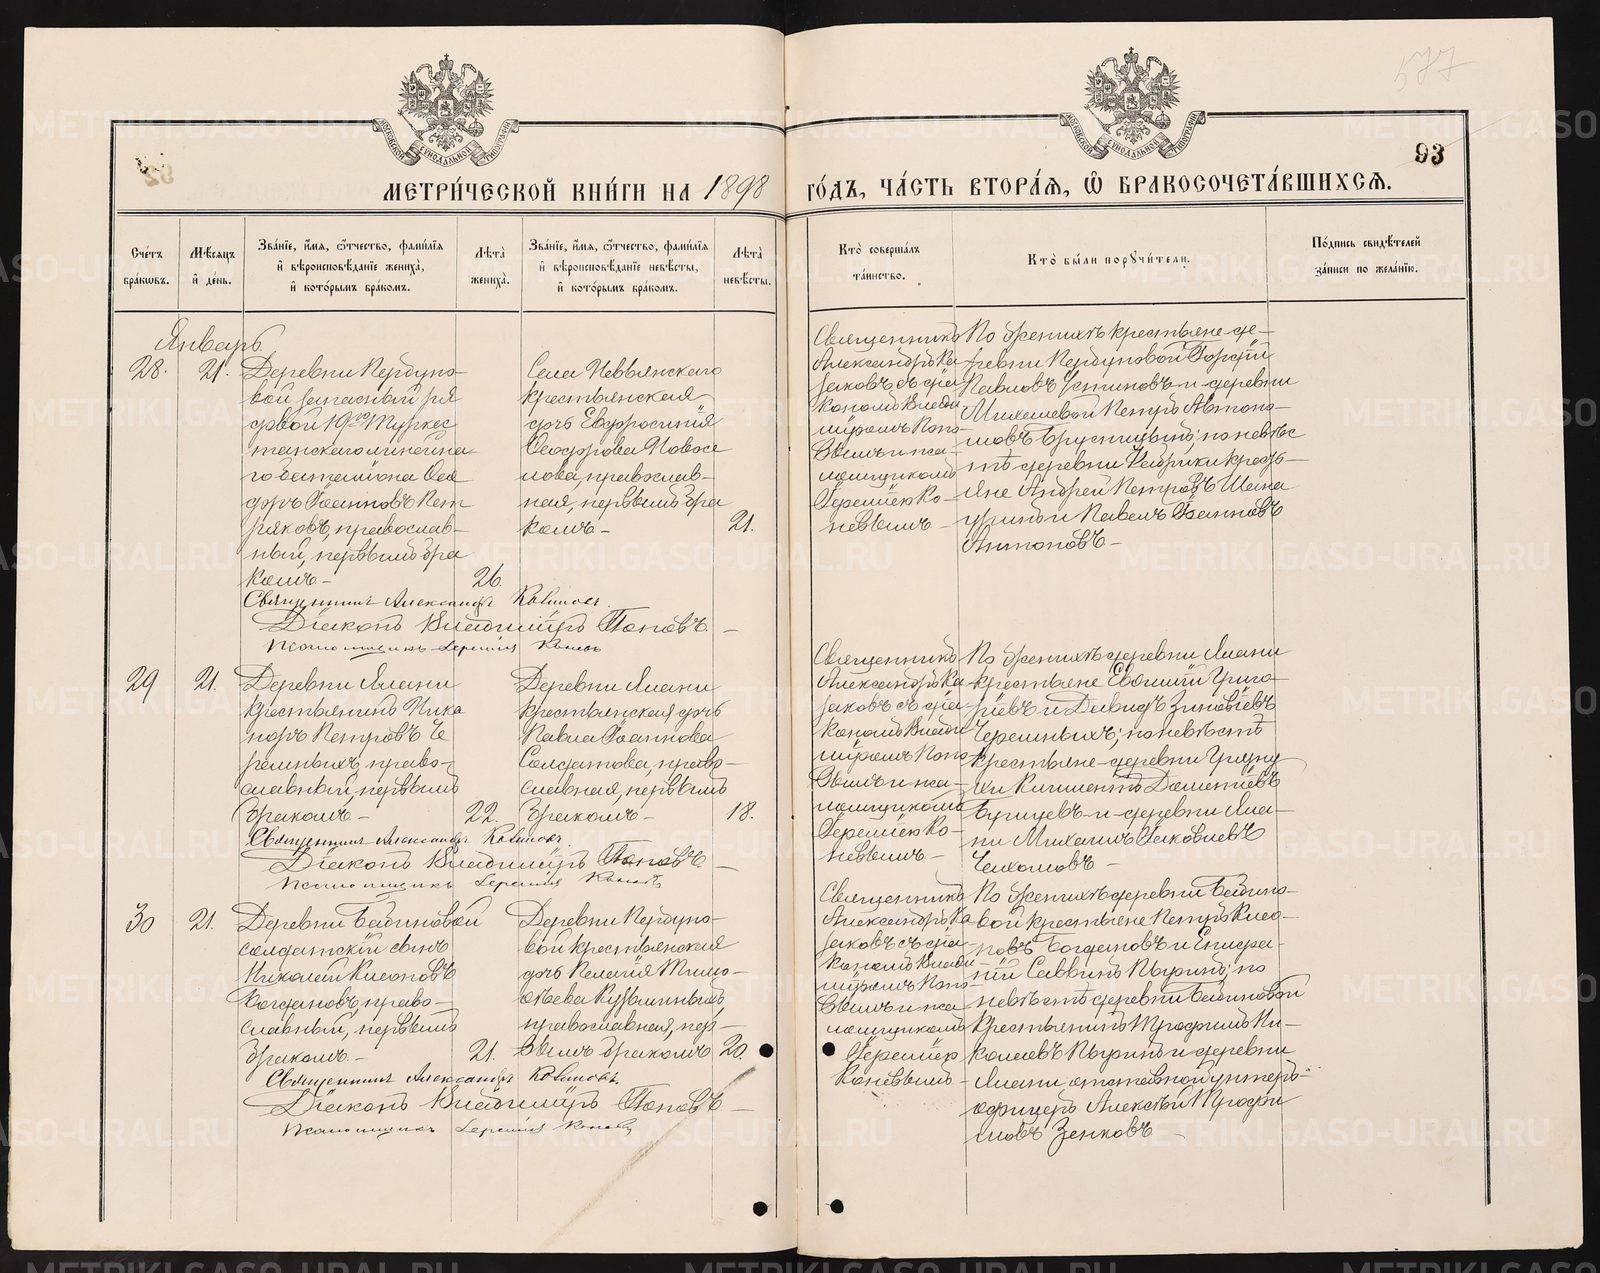 577
93
МОСКОВСКОЙ СѴНОДАЛЬНОЙ ТИПОГРАФІИ
МОСКОВСКОЙ СѴНОДАЛЬНОЙ ТИПОГРАФІИ
МЕТРИ́ЧЕСКОЙ КНИ́ГИ НА 1898 ГО́ДЪ, ЧА́СТЬ ВТОРА́Ѧ, Ѽ БРАКОСОЧЕТА́ВШИХСѦ.
Сче́тъ бра́кѡвъ.
Мѣ́сѧцъ и҆ де́нь.
Зва́нїе, и҆́мѧ, ѻ҆́тчество, фами́лїѧ и҆ вѣроисповѣ́данїе жениха̀, и҆ кото́рымъ бра́комъ.
Лѣ́та жениха̀.
Зва́нїе, и҆́мѧ, ѻ҆́тчество, фами́лїѧ и҆ вѣроисповѣ́данїе невѣ́сты, и҆ кото́рымъ бра́комъ.
Лѣ́та невѣ́сты.
Кто̀ соверша́лъ та́инство.
Кто̀ бы́ли порꙋчи́тели.
По́дпись свидѣ́телей за́писи по жела́нїю.
Январь
28.
21.
Деревни Пердуно-
вой запасный ря
довой 19го Туркес
танскаго линейна-
го баталіона Ѳео
доръ Іоанновъ Пет
ряковъ, православ-
ный, первымъ бра
комъ-
26.
Села Невьянскаго
крестьянская
дочь Евфросинія
Ѳеодорова Новосе
лова, православ-
ная, первымъ бра
комъ-
21.
Священникъ
Александръ Ка
заковъ съ діа
кономъ Влади
міромъ Попо-
вымъ и пса-
ломщикомъ
Іереміею Ко-
невымъ-
По женихѣ крестьяне де-
ревни Пердуновой Георгій
Павловъ Устиновъ и деревни
Михалевой Петръ Автоно-
мовъ Брусницынъ; по невѣс
тѣ деревни Фабрики кресть-
яне Андрей Петровъ Шана
уринъ и Павелъ Іоанновъ
Антоновъ-
Священникъ Александръ Казаковъ.
Діаконъ Владиміръ Поповъ-
Псаломщикъ Іеремія Коневъ
29
21.
Деревни Ялани
крестьянинъ Ника
норъ Петровъ Че
ремныхъ, право-
славный, первымъ
бракомъ-
22.
Деревни Ялани
крестьянская дочь
Павла Іоаннова
Солдатова, право-
славная, первымъ
бракомъ-
18.
Священникъ
Александръ Ка
заковъ съ діа-
кономъ Влади
міромъ Попо
вымъ и пса-
ломщикомъ
Іереміею Ко-
невымъ-
По женихѣ деревни Ялани
крестьяне Евѳимій Григо
рьевъ и Давидъ Зиновіевъ
Черемныхъ; по невѣстѣ
крестьяне деревни
Климентъ Дометіевъ
и деревни Яла-
ни Михаилъ Іаковлевъ
Священникъ Александръ Казаковъ.
Діаконъ Владиміръ Поповъ-
Псаломщикъ Іеремія Коневъ
30
21.
Деревни Бабиновой
солдатскій сынъ
Николай Киановъ
Богдановъ, право-
славный, первымъ
бракомъ.-
21.
Деревни Пердуно-
вой крестьянская
дочь Пелагія Тимо-
ѳеева Кузьминыхъ
православная, пер-
вымъ бракомъ
20.
Священникъ
Александръ Ка
заковъ съ діа-
кономъ Влади
міромъ Попо
вымъ и пса
ломщикомъ
Іереміею
Коневымъ-
По женихѣ деревни Бабино-
вой крестьяне Петръ
Богдановъ и Епифа-
ній Саввинъ Пыринъ; по
невѣстѣ деревни Бабиновой
крестьянинъ Трофимъ Ни-
колаевъ Пыринъ и деревни
Ялани отставной унтеръ-
офицеръ Алексѣй Трофи
мовъ Зенковъ-
Священникъ Александръ Казаковъ.
Діаконъ Владиміръ Поповъ-
Псаломщикъ Іеремія Коневъ
METRIKI.GASO-URAL.RU